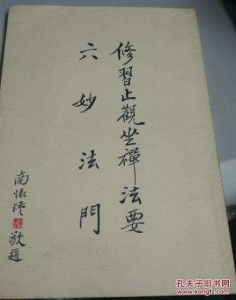 修習止觀坐禪法要
六妙法門
南懷瑾
敬題
孔夫子旧书网